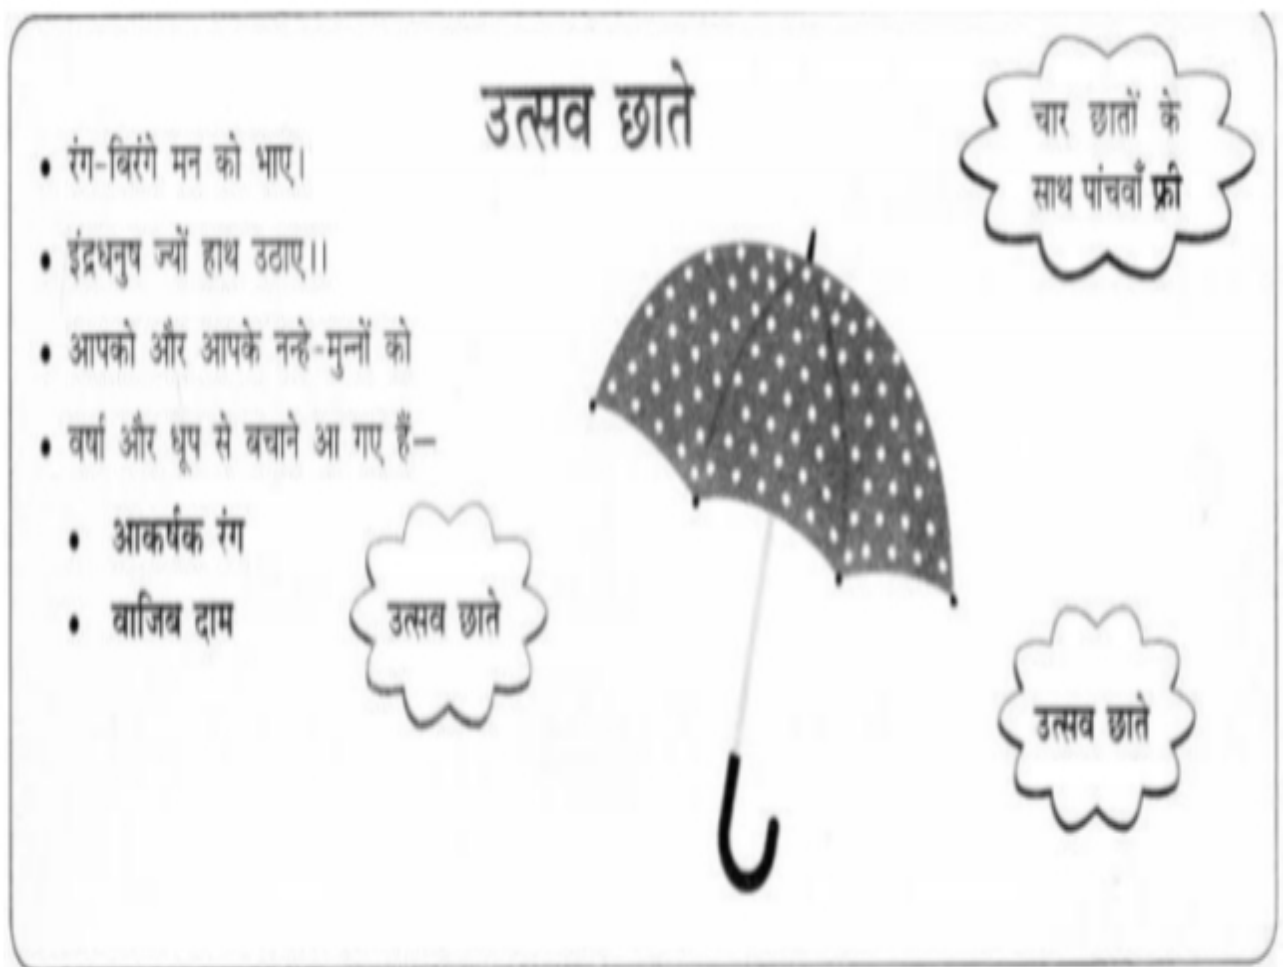 उत्सव छाते
चार छातों के
साथ पांचवाँ फ्री
• रंग-बिरंगे मन को भाए।
• इंद्रधनुष ज्यों हाथ उठाए।।
• आपको और आपके नन्हे-मुन्नों को
• वर्षा और धूप से बचाने आ गए हैं—
• आकर्षक रंग
• वाजिब दाम
उत्सव छाते
उत्सव छाते